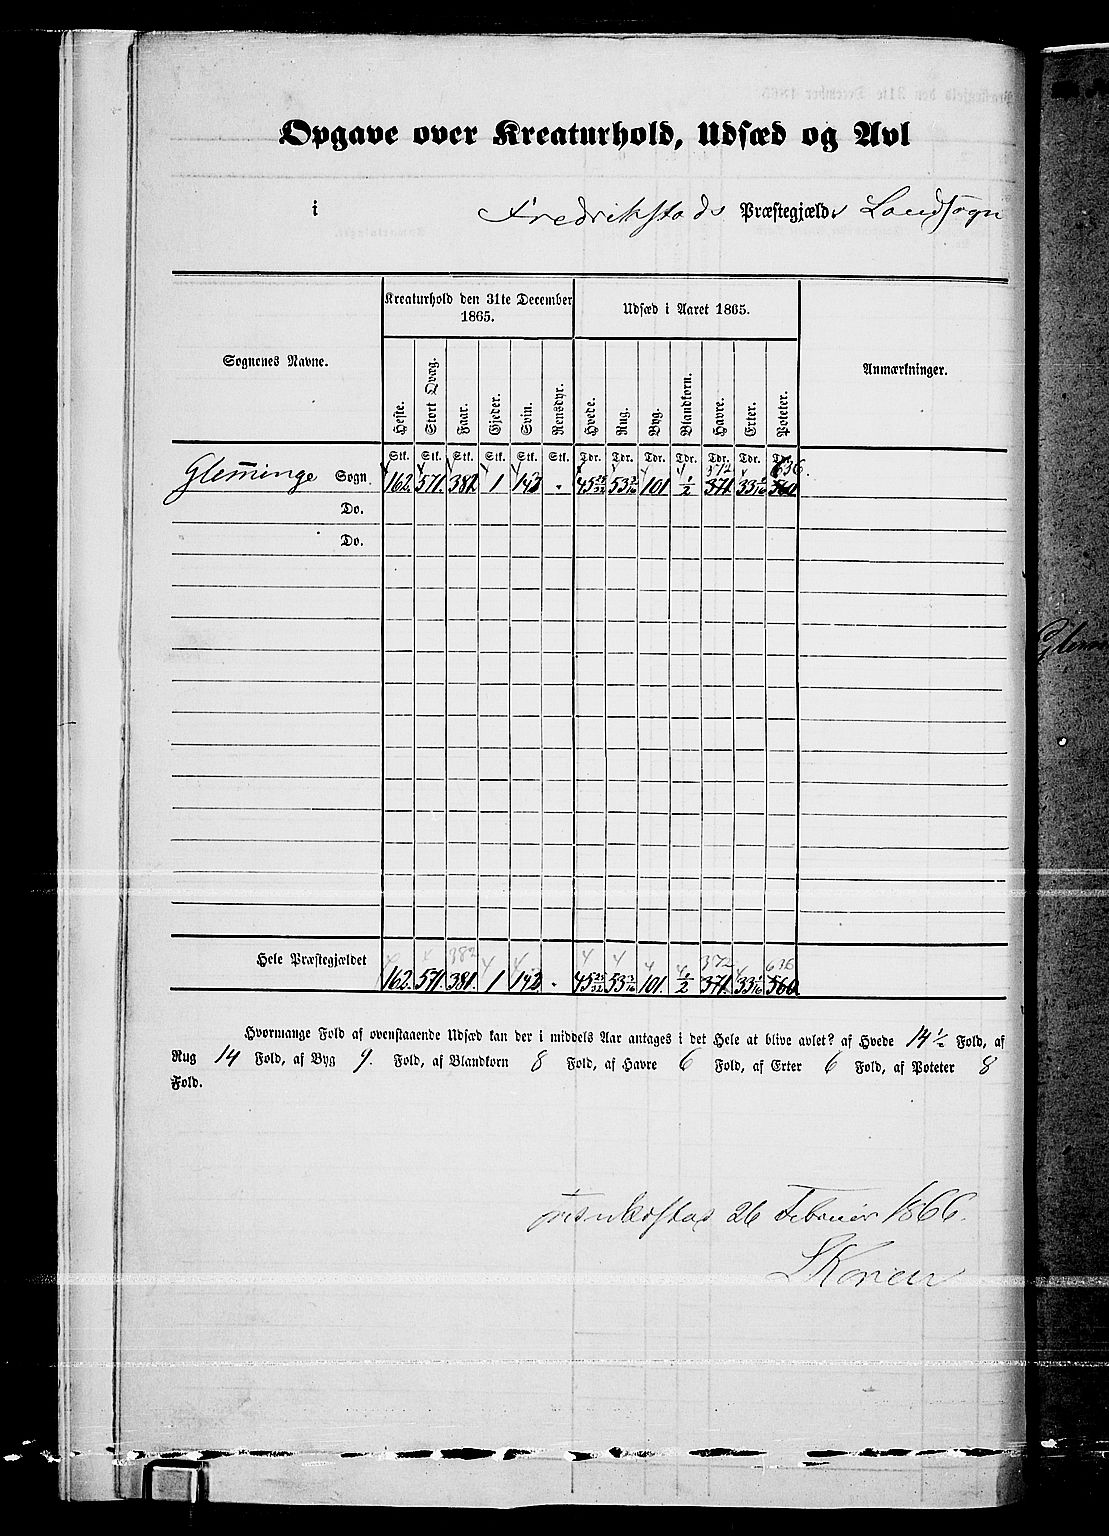 Opgave over Kreaturhold, Udsæd og Avl
i Fredrikstads Præstegjælds Landsogn
Sognenes Navne. Kreaturhold den 31te December 1865. Udsæd i Aaret 1865. Anmærkninger.
Heste. Stort Qvæg. Faar. Gjeder. Svin. Rensdyr. Hvede. Rug. Byg. Blandkorn. Havre. Erter. Poteter.
Stk. Stk. Stk. Stk. Stk. Stk. Tdr. Tdr. Tdr. Tdr. Tdr. Tdr. Tdr.
372 636.
Glemminge Sogn. 162. 571. 382. 1 142 . 45 53 101 1/2 371. 33 560
Do.
Do.
382 372 636
Hele Præstegjældet 162. 571. 381. 1 142 . 45 53 101. 1/2 371. 33 560
Hvormange Fold af ovenstaaende Udsæd kan der i middels Aar antages i det Hele at blive avlet? af Hvede 14 1/2 Fold, af
Rug 14 Fold, af Byg 9. Fold, af Blandkorn 8 Fold, af Havre 6 Fold, af Erter 6 Fold, af Poteter 8
Fold.
26 Februar 1866.